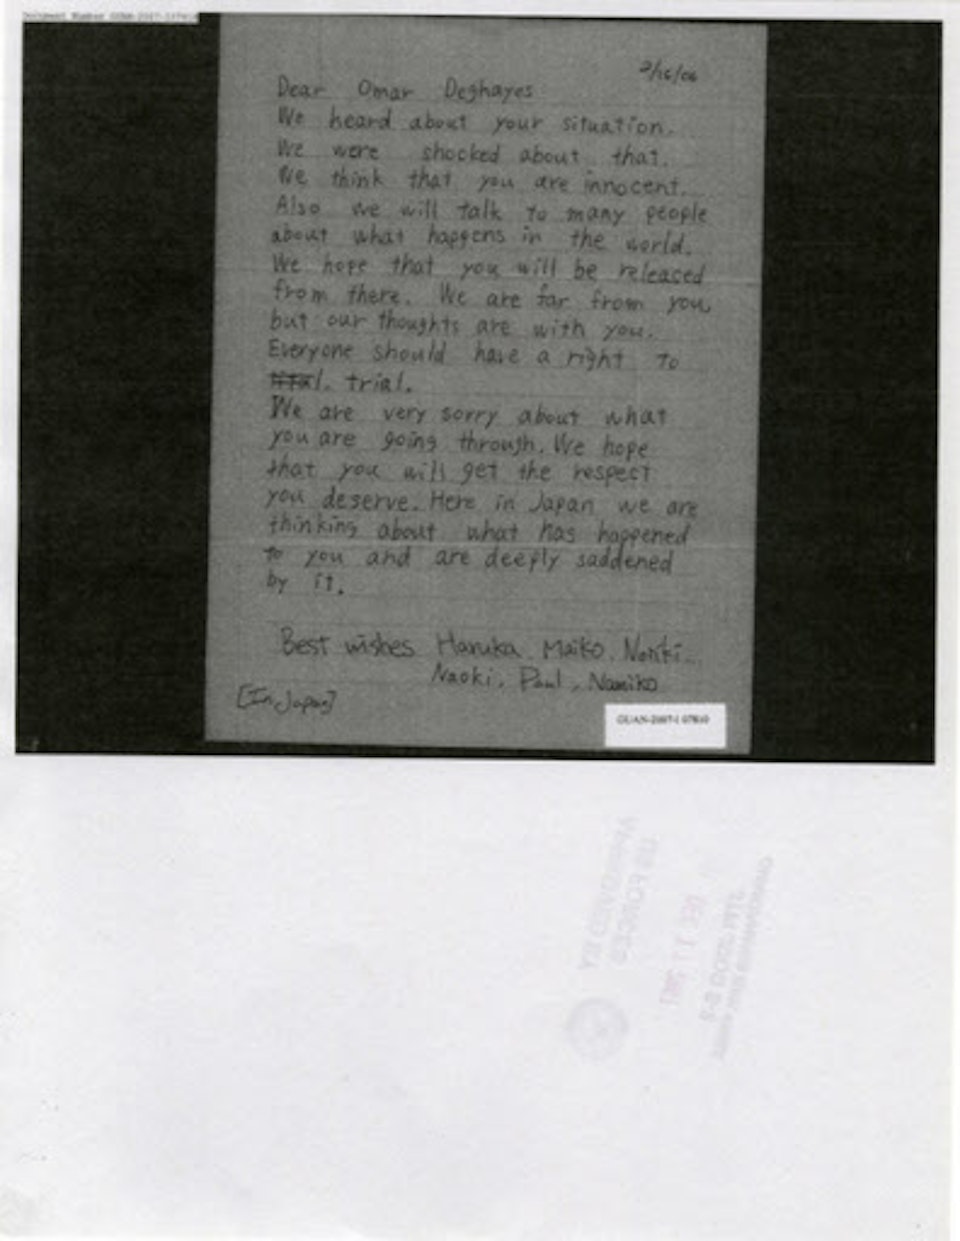 Dear Omar Deghayes
We heard about your situation.
We were shocked about that.
We think that you are innocent.
Also we will talk to many people
about what happens in the world.
We hope that you will be released
from there. We are far from you
but our thoughts are with you.
Everyone should have a right to
trial.
We are very sorry about what
you are going through. We hope
that you will get the respect
you deserve. Here in Japan we are
thinking about what has happened
to you and are deeply saddened
by it.
Best wishes Haruka. Maiko. Noriki...
Naoki. Paul, Namiko
[In Japan]
US FORCES